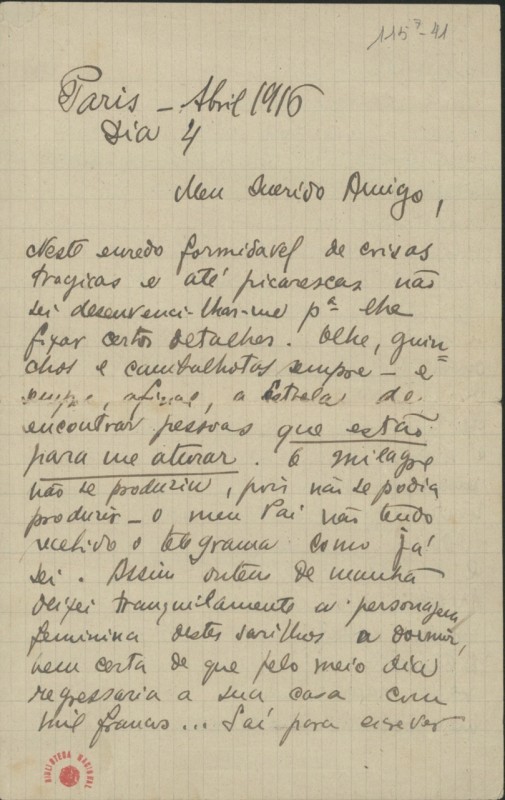 115⁷-41
Paris - Abril 1916
Dia 4
Meu Querido Amigo,
Neste enredo formidavel de coisas
tragicas e até picarescas não
sei desenvenci-lhar-me pª lhe
fixar certos detalhes. Olhe, guin=
chos e cambalhotas sempre - e
sempre, afinal, a Estrela de
encontrar pessoas que estão
para me aturar. O milagre
não se produziu, pois não se podia
produzir - o meu Pai não tendo
recebido o telegrama como já
sei. Assim ontem de manhã
deixei tranquilamente a personagem
feminina destes sarilhos a dormir,
bem certa de que pelo meio dia
regressaria a sua casa com
mil francos... Saí para escrever
BIBLIOTECA NACIONAL